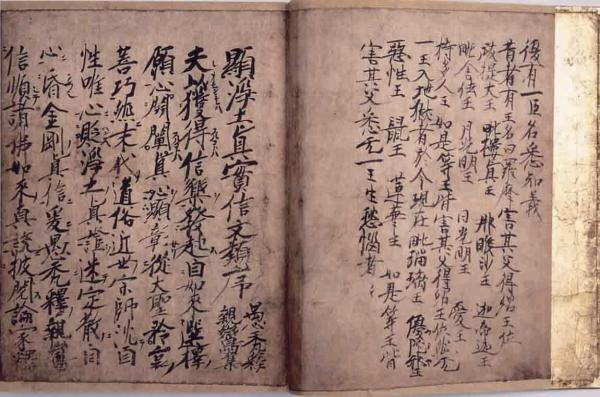 復有一臣名悉知義
昔者有王名曰羅摩害其父得紹王位
跋提大王 毗樓真王 那睺沙王 迦帝迦王
毗舍佉王 月光明王 日光明王 愛王
持多人王 如是等王皆害其父得紹王位然无
一王入地獄者於今現在毗瑠璃王 優陀邪王
惡性王 鼠王 蓮華王 如是等王皆
害其父悉无一王生愁惱者
顯淨土眞實信文類序
愚禿釋親鸞集
夫以獲得信樂發起自如來選擇
願心開闡眞心顯彰從大聖矜哀
善巧然末代道俗近世宗師沈自
性唯心貶淨土眞證迷定散自
心昏金剛眞信爰愚禿釋親鸞
信順諸佛如來眞說披閱論家釋家